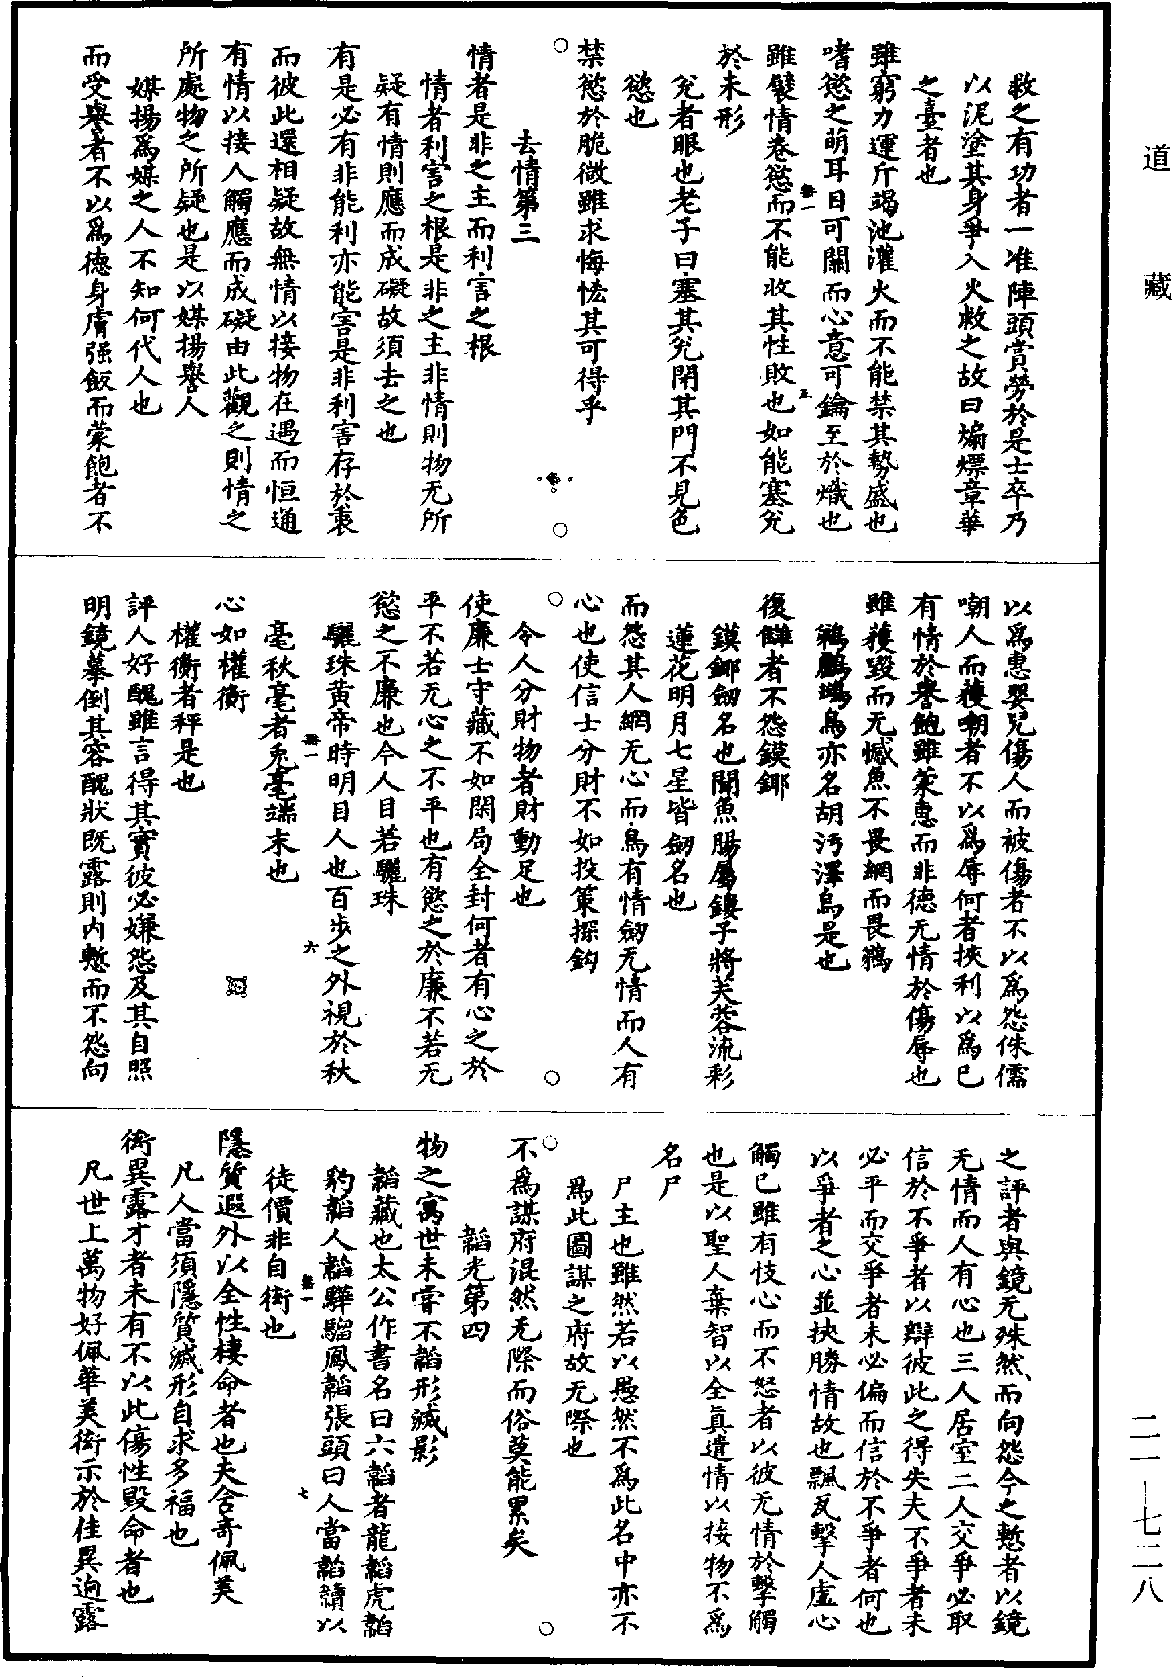 道藏
救之有功者一准陣頭賞勞於是士卒乃
以泥塗其身爭入火救之故曰煸熛章華
之臺者也
雖窮力運斤竭池灌火而不能禁其勢盛也
嗜慾之萌耳目可關而心意可鑰至於熾也
雖襞情卷慾而不能收其性敗也如能塞兊
於未形
兊者眼也老子曰塞其兊閉其門不見色
慾也
禁慾於脆微雖求悔悋其可得乎
去情第三
情者是非之主而利害之根
情者利害之根是非之主非情則物无所
疑有情則應而成礙故須去之也
有是必有非能利亦能害是非利害存於衷
而彼此還相疑故無情以接物在遇而恒通
有情以接人觸應而成礙由此觀之則情之
所處物之所疑也是以媒揚譽人
媒揚爲媒之人不知何代人也
而受譽者不以爲德身膚强飯而蒙飽者不
以爲惠嬰兒傷人而被傷者不以爲怨侏儒
嘲人而獲嘲者不以爲辱何者挾利以爲已
有情於譽飽雖蒙惠而非德无情於傷辱也
雖獲毀而无憾魚不畏網而畏鵜
鵜鶘鴻鳥亦名胡污澤鳥是也
復讎者不怨鏌鎁
鏌鎁劒名也聞魚腸屬鏤子將芙蓉流彩
蓮花明月七星皆劒名也
而怨其人網无心而鳥有情劒无情而人有
心也使信士分財不如投策探鈎
令人分財物者財動足也
使廉士守藏不如閉局全封何者有心之於
平不若无心之不平也有慾之於廉不若无
慾之不廉也今人目若驪珠
驪珠黄帝時明目人也百步之外視於秋
毫秋毫者兎毫端末也
心如權衡
權衡者秤是也
評人好醜雖言得其實彼必嫌怨及其自照
明鏡摹倒其容醜狀既露則内慙而不怨向
之評者與鏡无殊然而向怨今之慙者以鏡
无情而人有心也三人居室二人交爭必取
信於不爭者以辯彼此之得失夫不爭者未
必平而交爭者未必偏而信於不爭者何也
以爭者之心並挾勝情故也飄瓦擊人虛心
觸已雖有忮心而不怒者以彼无情於擊觸
也是以聖人棄智以全眞遺情以接物不爲
名尸
尸主也雖然若以愚然不爲此名中亦不
爲此圖謀之府故无際也
不爲謀府混然无際而俗莫能累矣
韜光第四
物之寓世未嘗不韜形滅影
韜藏也太公作書名曰六韜者龍韜虎韜
豹韜人韜驊騮鳳韜張頭曰人當韜讀以
徒價非自衒也
隱質遐外以全性棲命者也夫含奇佩美
凡人當須隱質滅形自求多福也
衒異露才者未有不以此傷性毀命者也
凡世上萬物好佩華美衒示於佳異逈露
二一—七二八